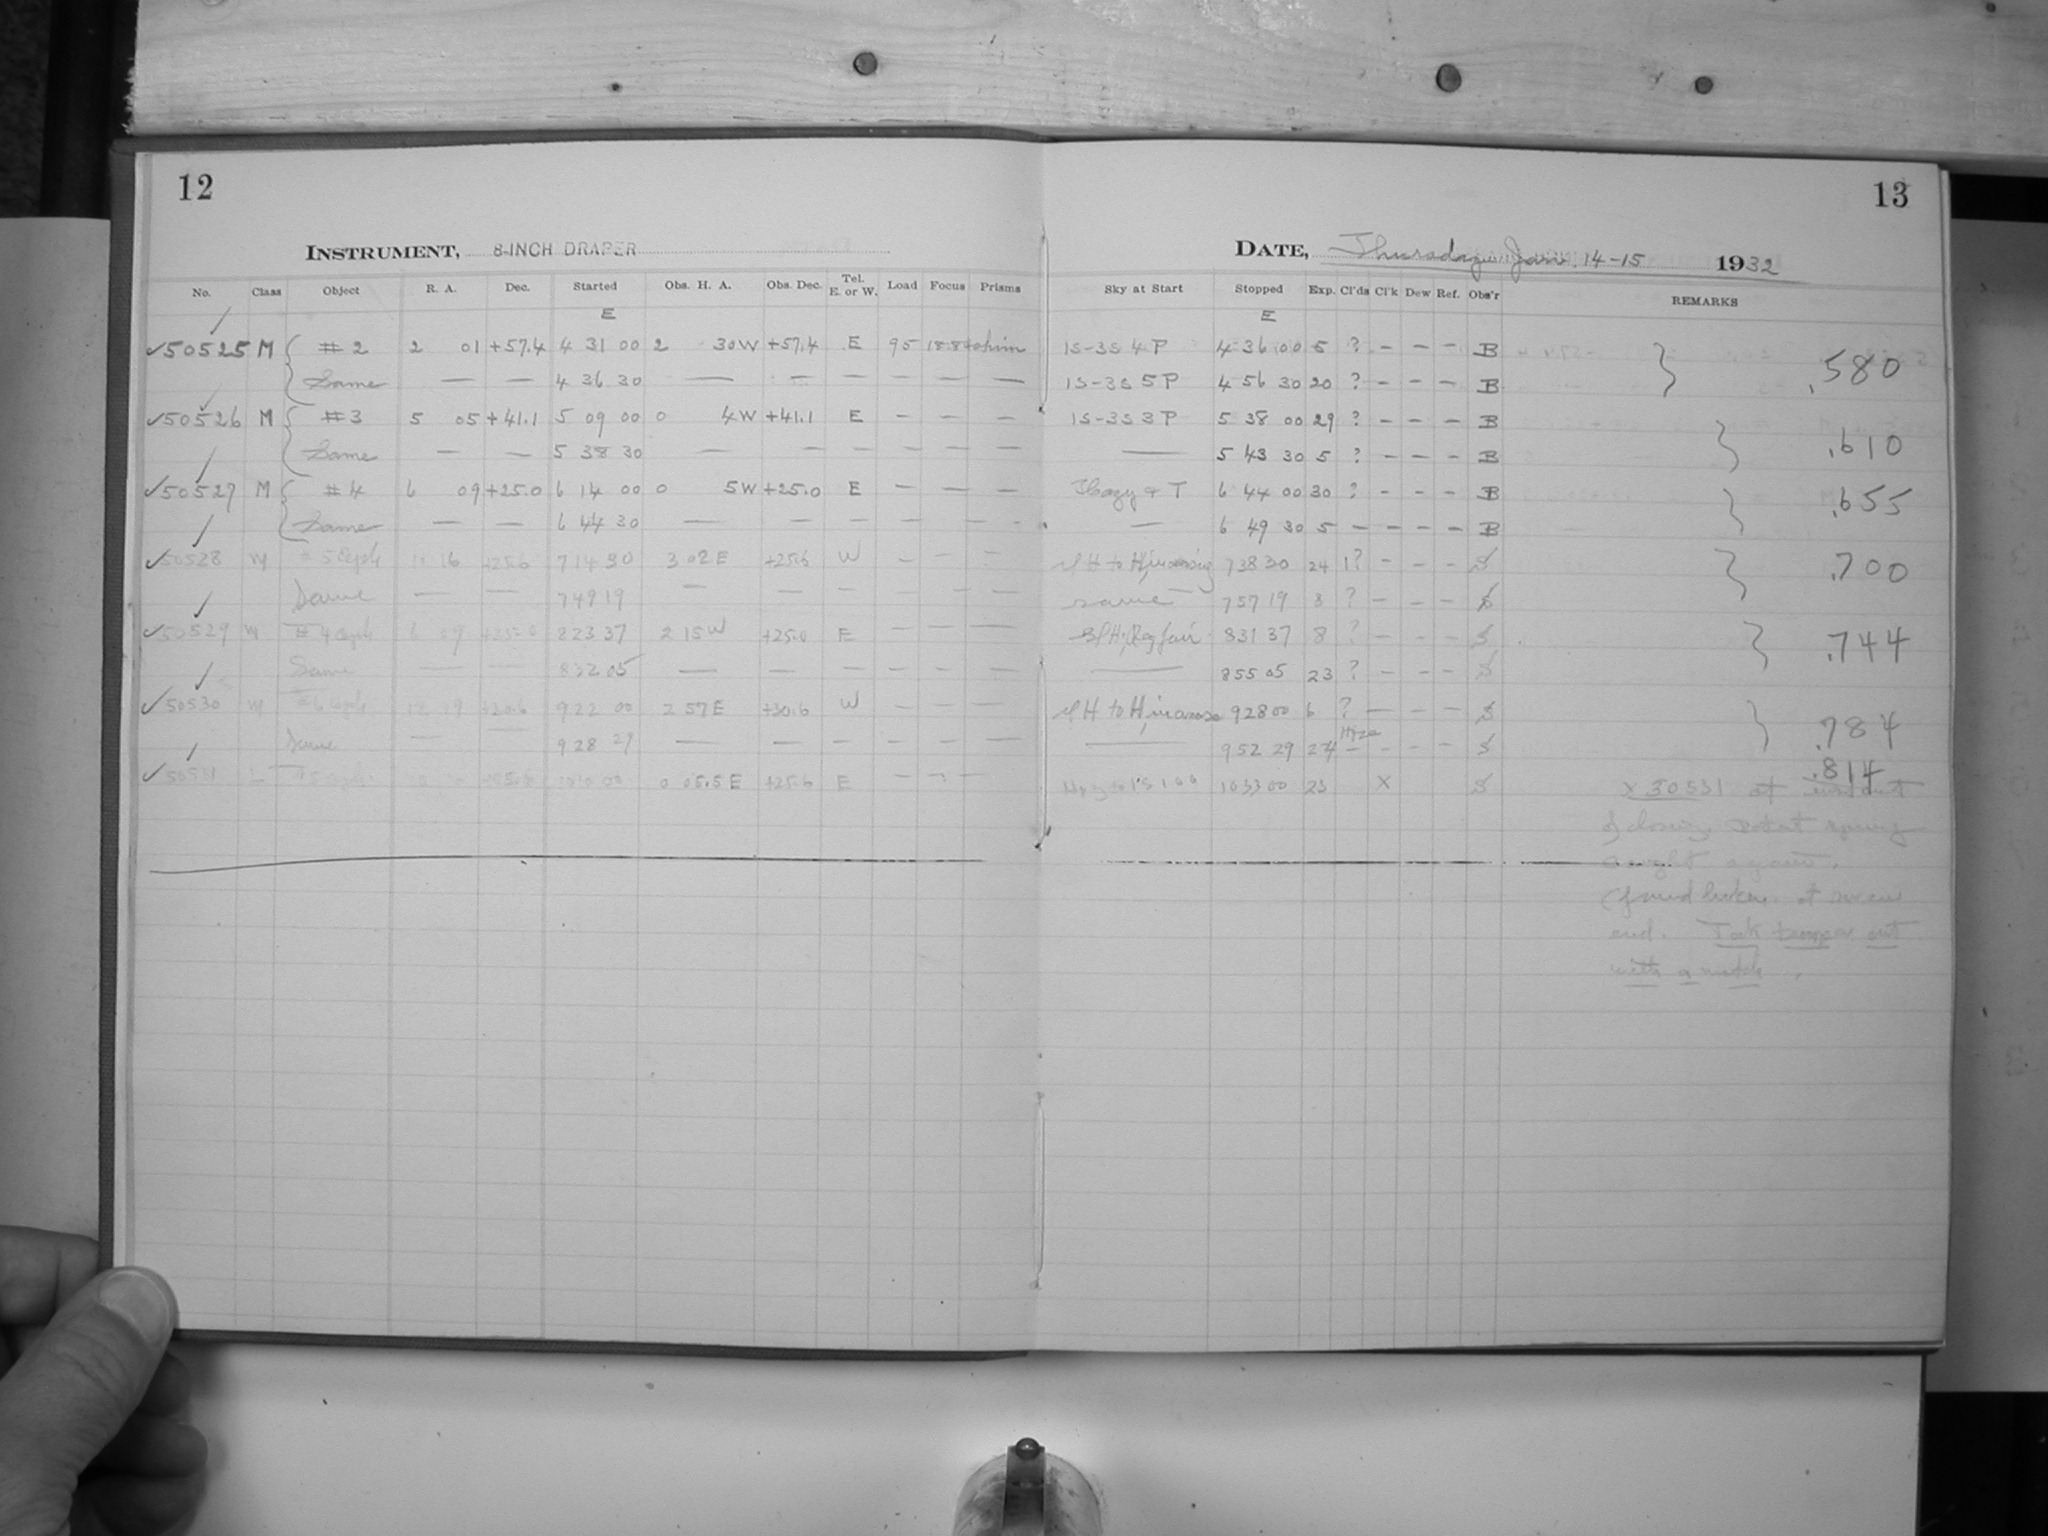 12
13
INSTRUMENT, 8-INCH DRAPER
DATE, Thursday Jan. 14-15 1932
No. Class Object R. A. Dec. Started Obs. H. A. Obs. Dec. Tel. E. or W. Load Focus Prisms Sky at Start Stopped Exp. Cl'ds Cl'k Dew Ref. Obs'r REMARKS
E E
✓50525 M #2 2 01 +57.4 4 31 00 2 30W +57.4 E 95 1S-3S 4 P 4 36 00 5 ? – – – B .580
Same — — 4 36 30 — — — — — — 1S-3S 5 P 4 56 30 20 ? – – – B
✓50526 M #3 5 05 +41.1 5 09 00 0 4W +41.1 E – — — 1S-3S 3 P 5 38 00 29 ? – – – B .610
Same — — 5 38 30 — — — — — — — 5 43 30 5 ? – – – B
✓50527 M #4 6 09 +25.0 6 14 00 0 5W +25.0 E – — — & T 6 44 00 30 ? – – – B .655
Same — — 6 44 30 — — — — — — — 6 49 30 5 – – – – B
✓50528 M #5 16 +25.6 7 14 30 3 02 E +25.6 W – – — H to H, 7 38 30 24 1? – – – S .700
Same — — 7 49 19 — — — — — — same 7 57 19 8 ? – – – S
✓50529 M #4 6 09 +25.0 8 23 37 2 15 W +25.0 E — — — fair 8 31 37 8 ? – – – S .744
Same — — 8 32 05 — — — — — — — 8 55 05 23 ? – – – S
✓50530 M #6 12 19 +30.6 9 22 00 2 57 E +30.6 W – – – H to H, 9 28 00 6 ? – – – S .784
Same — — 9 28 29 — — — — — — — 9 52 29 24 – – – – S
✓50531 L #5 0 05.5 E +25.6 E – – — 10 33 00 23 X S .814
X 50531 at
of closing
caught again.
(found broken at
end. Took out
with a match.